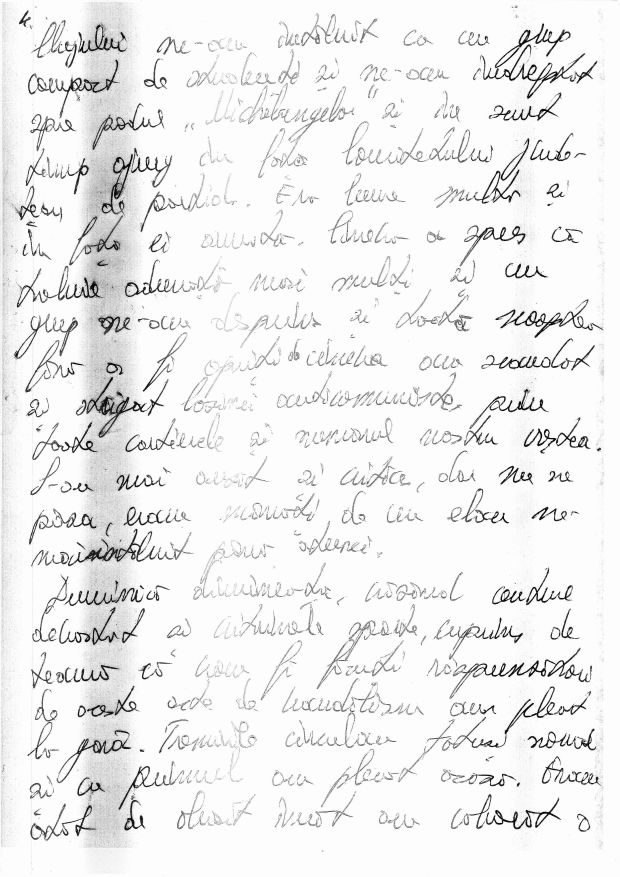 4.
Clujului ne-am întâlnit cu un grup
compact de studenți și ne-am îndreptat
spre podul „Michelangelo" și în scurt
timp ajung în fața Comitetului Jude-
țean de partid. Era lume multă și
în fața ei armata. Cineva a spus că
trebuie adunată mai mulți și un
grup ne-am desprins și toată noaptea
fără a fi opriți de cineva am scandat
și strigat lozinci anticomuniste prin
toate cartierele și numărul nostru creștea.
S-au mai auzit și critici, dar nu ne
păsa, eram mânați de un elan ne-
maiîntâlnit până atunci.
Duminică dimineața, văzând centrul
devastat și vitrinele sparte, cuprins de
teamă că vom fi făcuți răspunzători
de aceste acte de vandalism am plecat
la gară. Trenurile circulau totuși normal
și cu primul am plecat acasă. Eram
atât de obosit încât am coborât o